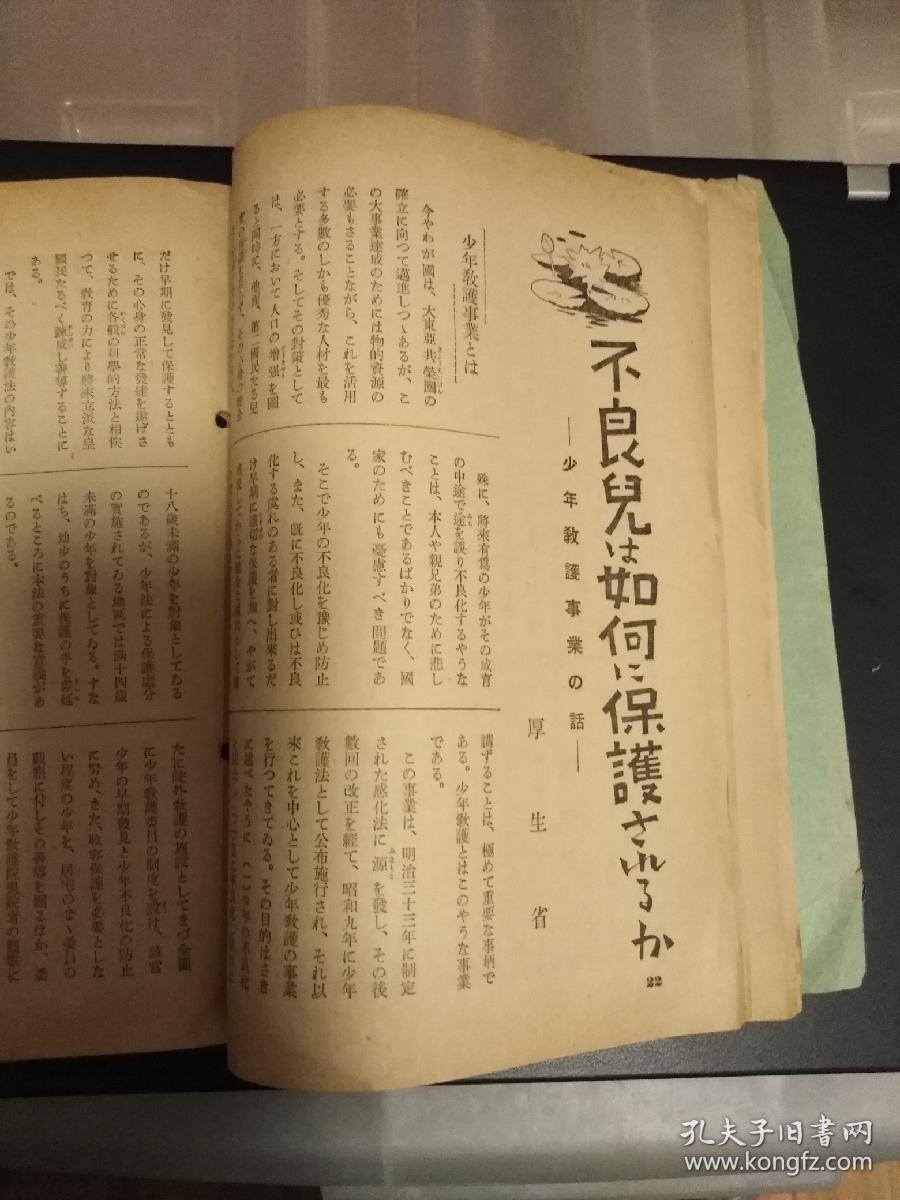 不良兒は如何に保護されるか
―少年教護事業の話―
厚生省
22
少年教護事業とは
今やわが國は、大東亞共榮圈の
確立に向つて邁進しつゝあるが、こ
の大事業達成のためには物的資源の
必要もさることながら、これを活用
する多數のしかも優秀な人材を最も
必要とする。そしてその對策として
は、一方において人口の增强を圖
ると同時に、他面、第二國民たる兒
殊に、將來有爲の少年がその成育
の中途で途を誤り不良化するやうな
ことは、本人や親兄弟のために悲し
むべきことであるばかりでなく、國
家のためにも憂慮すべき問題であ
る。
そこで少年の不良化を豫じめ防止
し、また、既に不良化し或ひは不良
化する虞れのある者に對し出來るだ
け早期に適切な保護を加へ、やがて
講ずることは、極めて重要な事柄で
ある。少年教護とはこのやうな事業
である。
この事業は、明治三十三年に制定
された感化法に源を發し、その後
數回の改正を經て、昭和九年に少年
教護法として公布施行され、それ以
來これを中心として少年教護の事業
を行つてきてゐる。その目的はさき
に述べたやうに（一）少年の不良化
だけ早期に發見して保護するととも
に、その心身の正常な發達を遂げさ
せるために各般の科學的方法と相俟
つて、教育の力により將來立派な皇
國民たるべく鍊成し善導することに
ある。
では、その少年教護法の內容はい
十八歲未滿の少年を對象としてゐる
のであるが、少年法による保護處分
の實施されてゐる地區では滿十四歲
未滿の少年を對象としてゐる。すな
はち、幼少のうちに保護の手を差延
べるところに本法の重要な意義があ
るのである。
たに院外教護の施設としてまづ全國
に少年教護委員の制度を設け、該當
少年の早期發見と少年不良化の防止
に努め、また、收容保護を必要としな
い程度の少年を、居宅のまゝ委員の
觀察に付しその善導を圖るほか、委
員をして少年教護院退院者の觀察に
孔夫子旧书网
www.kongfz.com